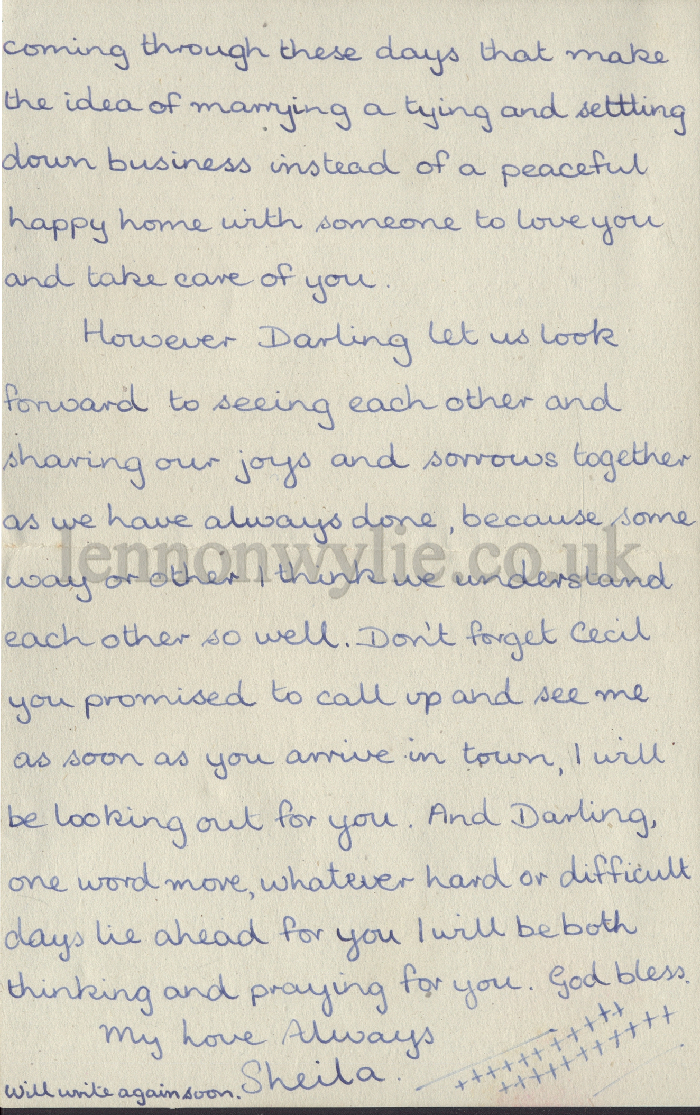 coming through these days that make
the idea of marrying a tying and settling
down business instead of a peaceful
happy home with someone to love you
and take care of you.
However Darling let us look
forward to seeing each other and
sharing our joys and sorrows together
as we have always done, because some
lennonwylie.co.uk
way or other I think we understand
each other so well. Don't forget Cecil
you promised to call up and see me
as soon as you arrive in town, I will
be looking out for you. And Darling,
one word more, whatever hard or difficult
days lie ahead for you I will be both
thinking and praying for you. God bless.
My Love Always
Sheila.
Will write again soon.